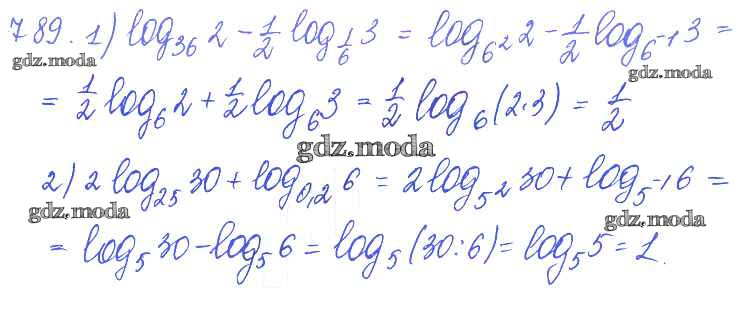 789. 1) log₃₆ 2 - 1/2 log_{1/6} 3 = log_{6²} 2 - 1/2 log_{6⁻¹} 3 =
gdz.moda gdz.moda
= 1/2 log₆ 2 + 1/2 log₆ 3 = 1/2 log₆ (2·3) = 1/2
gdz.moda
2) 2 log₂₅ 30 + log_{0,2} 6 = 2 log_{5²} 30 + log_{5⁻¹} 6 =
gdz.moda gdz.moda
= log₅ 30 - log₅ 6 = log₅ (30:6) = log₅ 5 = 1.